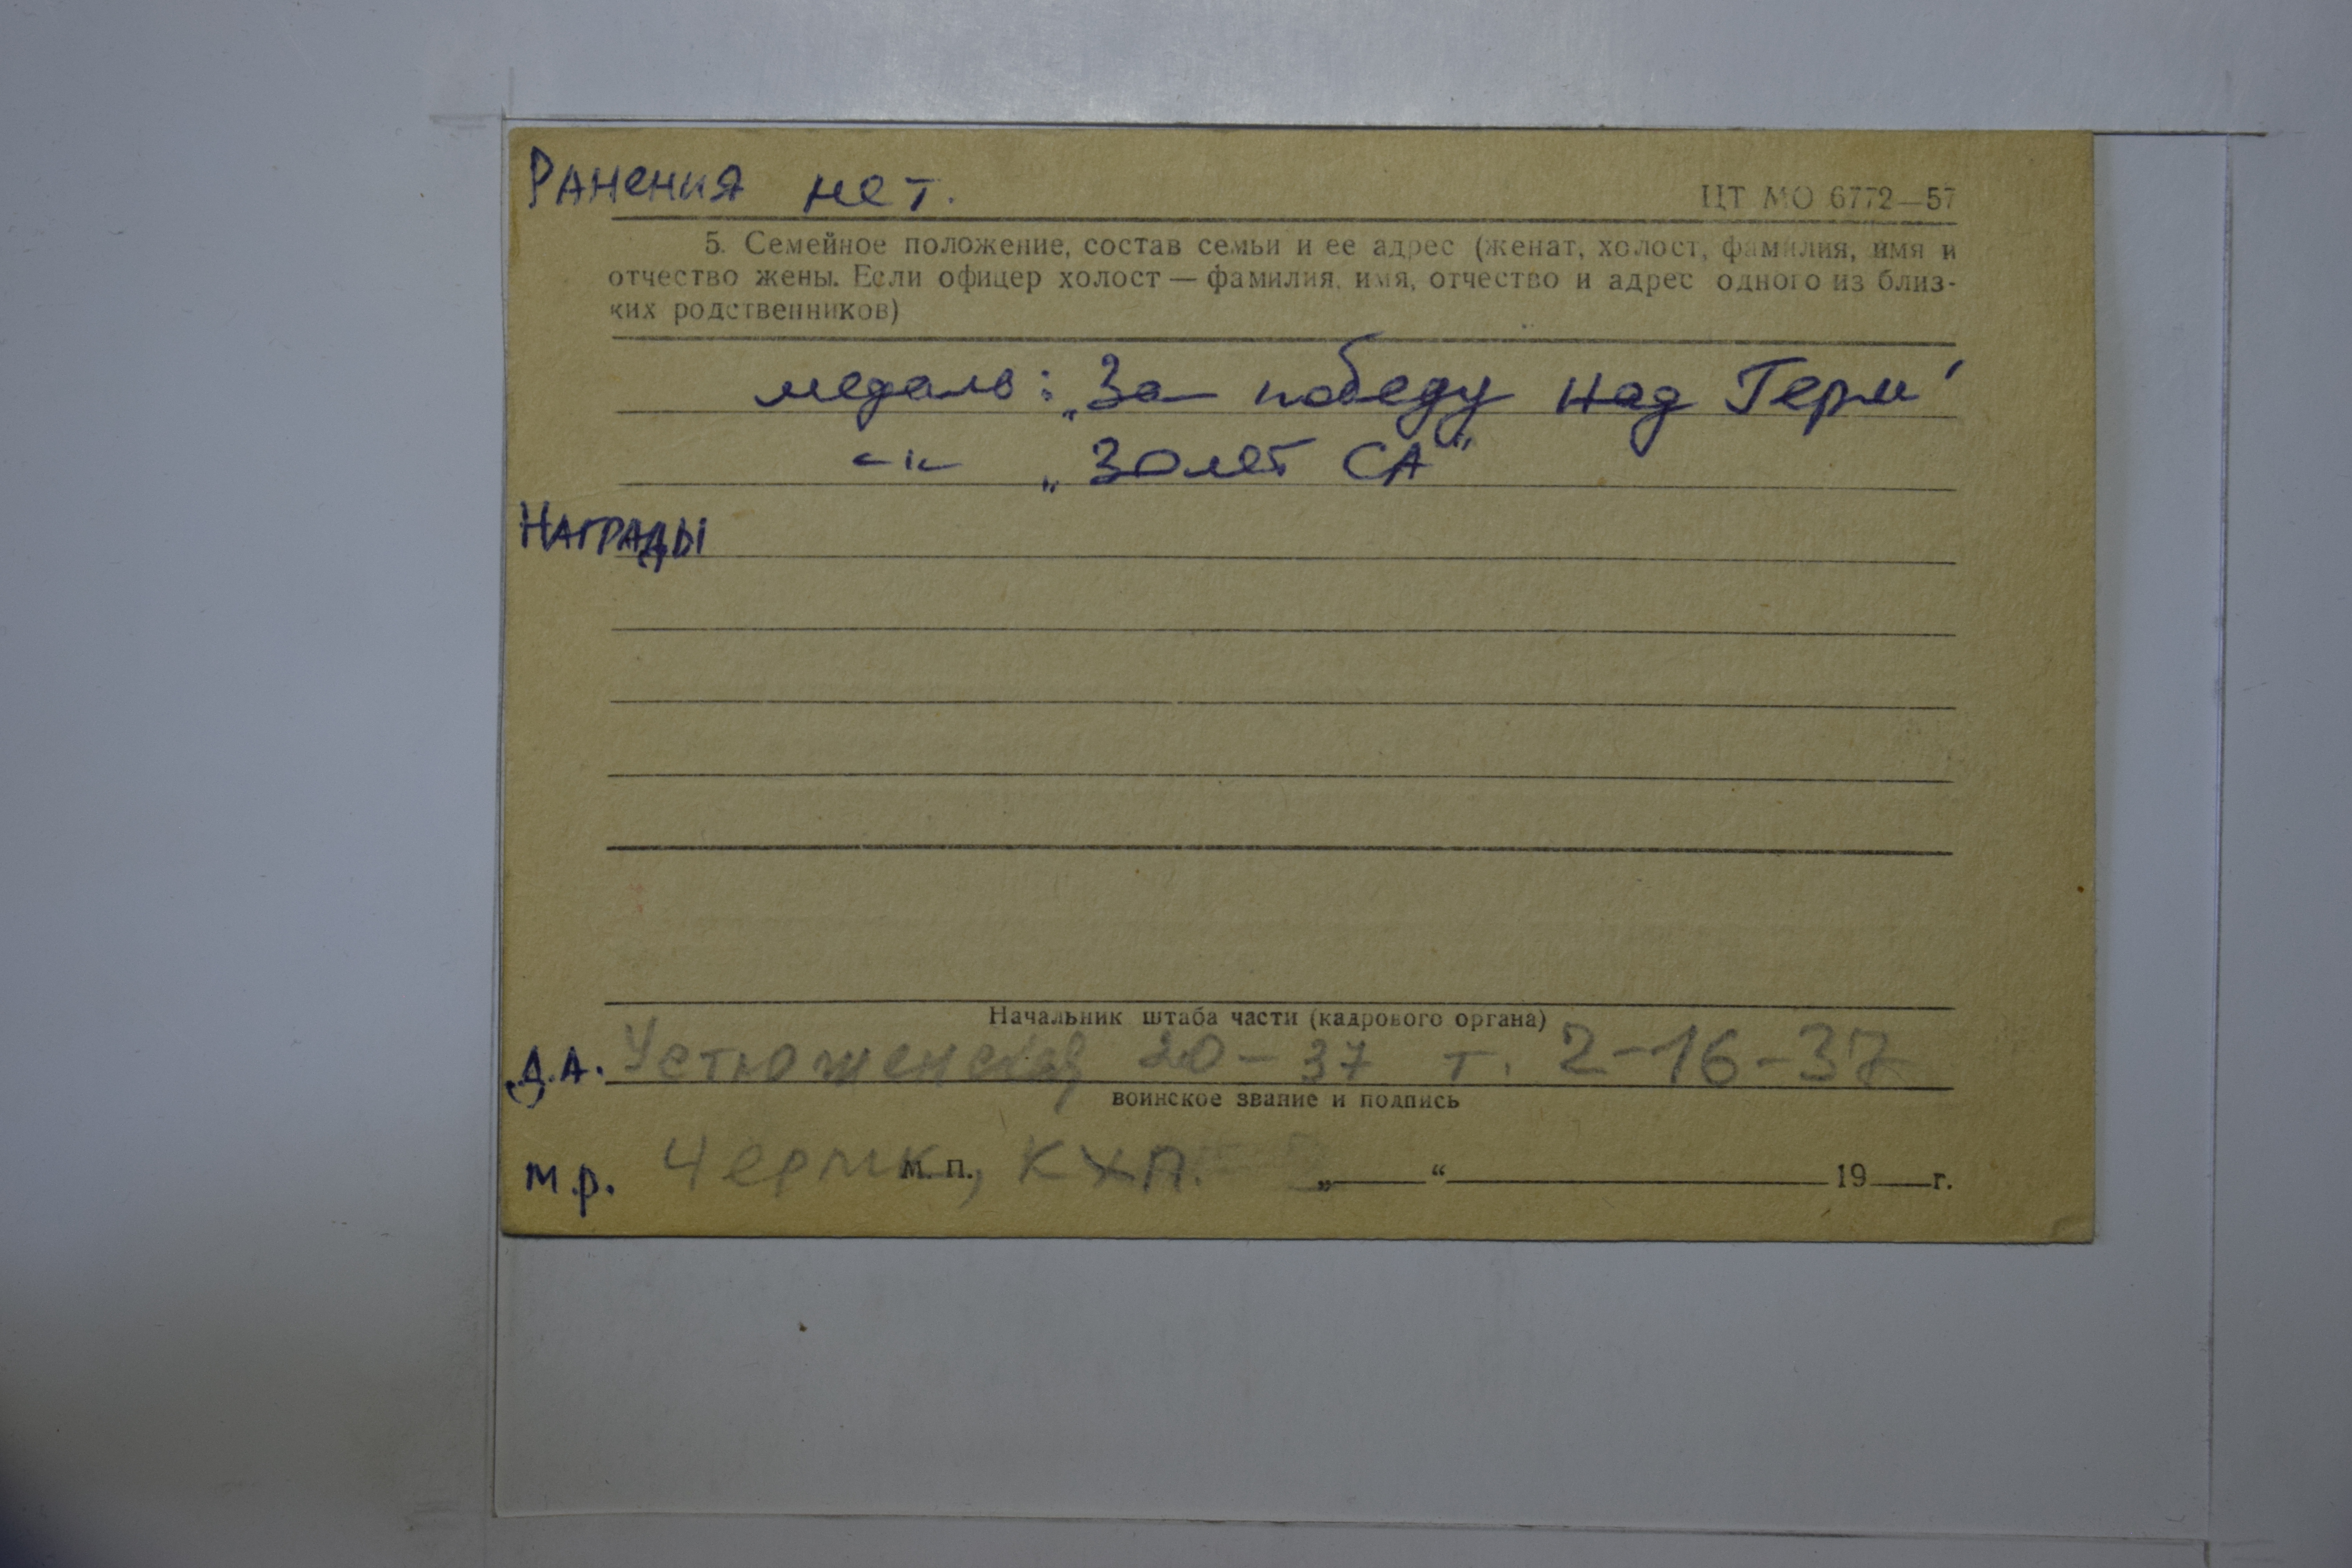 Ранения нет.
ЦТ МО 6772—57
5. Семейное положение, состав семьи и ее адрес (женат, холост, фамилия, имя и
отчество жены. Если офицер холост — фамилия, имя, отчество и адрес одного из близ-
ких родственников)
медаль: „За победу над Герм"
—"— „30 лет СА"
Награды
Начальник штаба части (кадрового органа)
Д.А. Устюженская 20-37 т. 2-16-37
воинское звание и подпись
м.р. Чермк, КХП.
М. п. „ " 19 г.